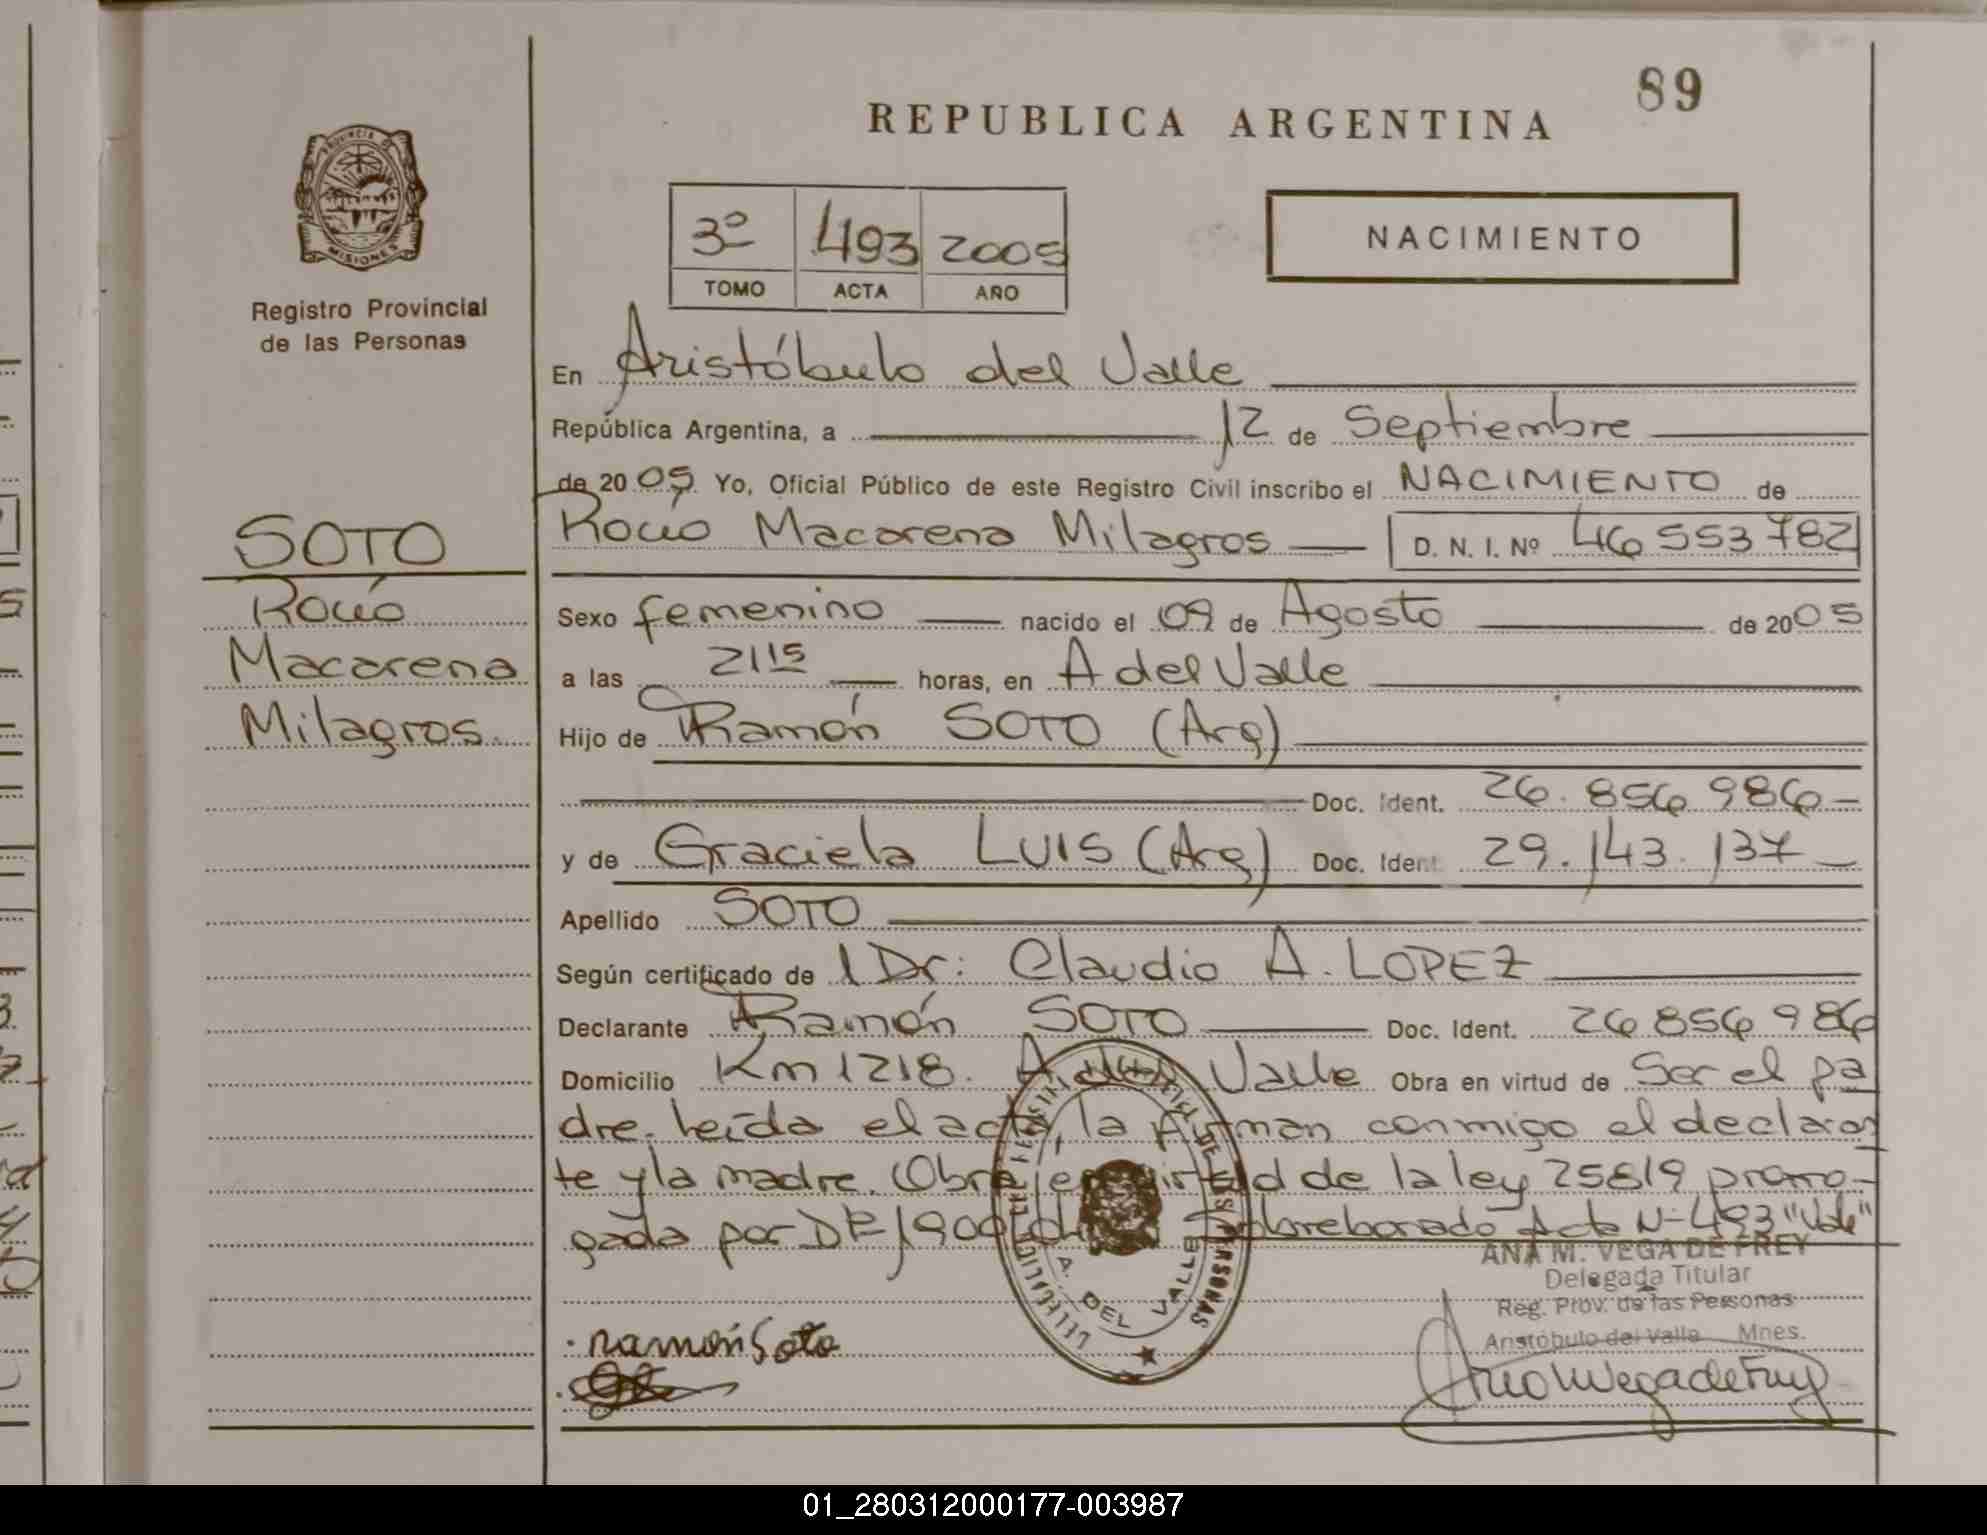 89
REPUBLICA ARGENTINA
PROVINCIA DE
MISIONES
Registro Provincial
de las Personas
3º 493 2005
TOMO ACTA AÑO
NACIMIENTO
En Aristóbulo del Valle
República Argentina, a 12 de Septiembre
de 2005 Yo, Oficial Público de este Registro Civil inscribo el NACIMIENTO de
Rocío Macarena Milagros D. N. I. Nº 46553782
SOTO
Rocío
Macarena
Milagros
Sexo femenino nacido el 09 de Agosto de 2005
a las 21 15 horas, en A del Valle
Hijo de Ramón SOTO (Arg)
Doc. Ident. 26.856986
y de Graciela LUIS (Arg) Doc. Ident. 29.143.137
Apellido SOTO
Según certificado de Dr: Claudio A. LOPEZ
Declarante Ramón SOTO Doc. Ident. 26856986
Domicilio Km 1218. A. del Valle Obra en virtud de Ser el pa
dre. Leída el acta, la firman conmigo el declaran
te y la madre. Obra en virtud de la ley 25819 prorro-
gada por Sobreborrado Acta Nº 493 "Vale"
ANA M. VEGA DE FREY
Delegada Titular
Reg. Prov. de las Personas
Aristóbulo del Valle Mnes.
A. DEL VALLE
DE LAS PERSONAS
ramón Soto
01_280312000177-003987